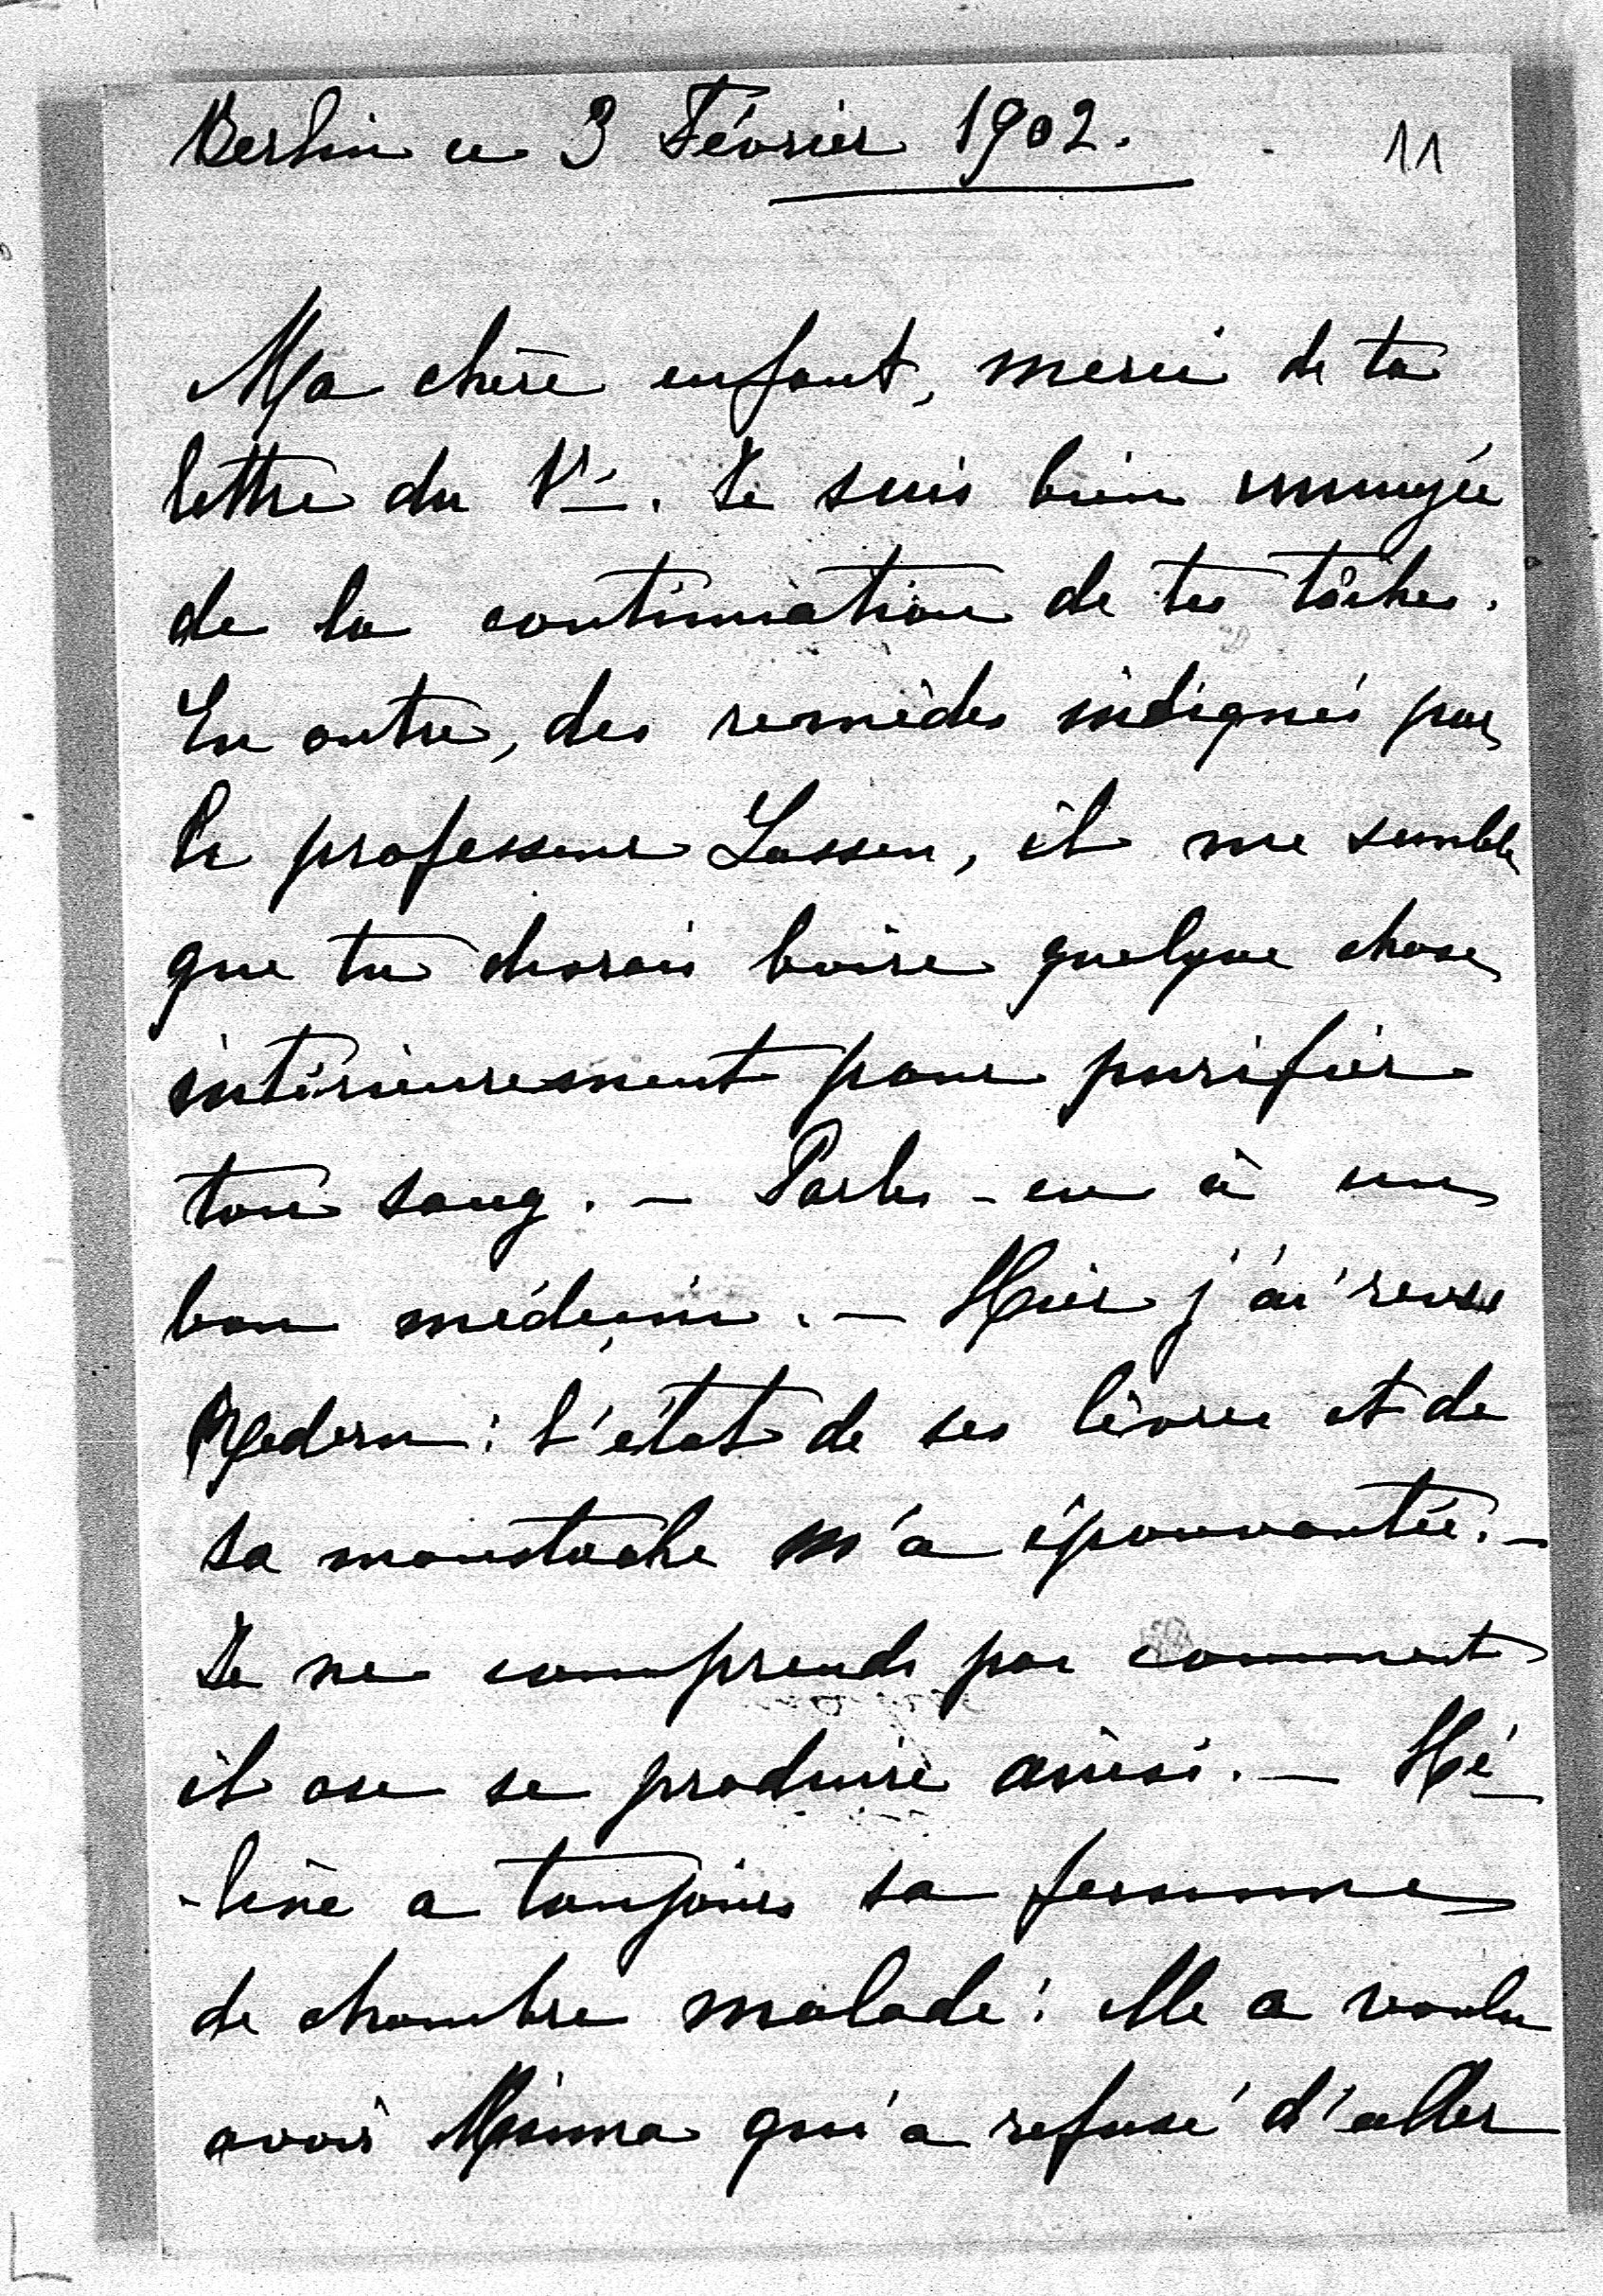 Berlin ce 3 Février 1902.
11
Ma chère enfant, merci de ta
lettre du 1er. Je suis bien ennuyée
de la continuation de tes tâches.
En outre, des remèdes indiqués par
le professeur Lassar, il me semble
que tu devrais boire quelque chose
intérieurement pour purifier
ton sang. – Parles-en à un
bon médecin. – Hier j'ai revu
: l'état de ses lèvres et de
sa moustache m'a épouvantée. –
Je ne comprends pas comment
il ose se produire ainsi. – Hé-
-lène a toujours sa femme
de chambre malade: elle a voulu
avoir Minna qui a refusé d'aller